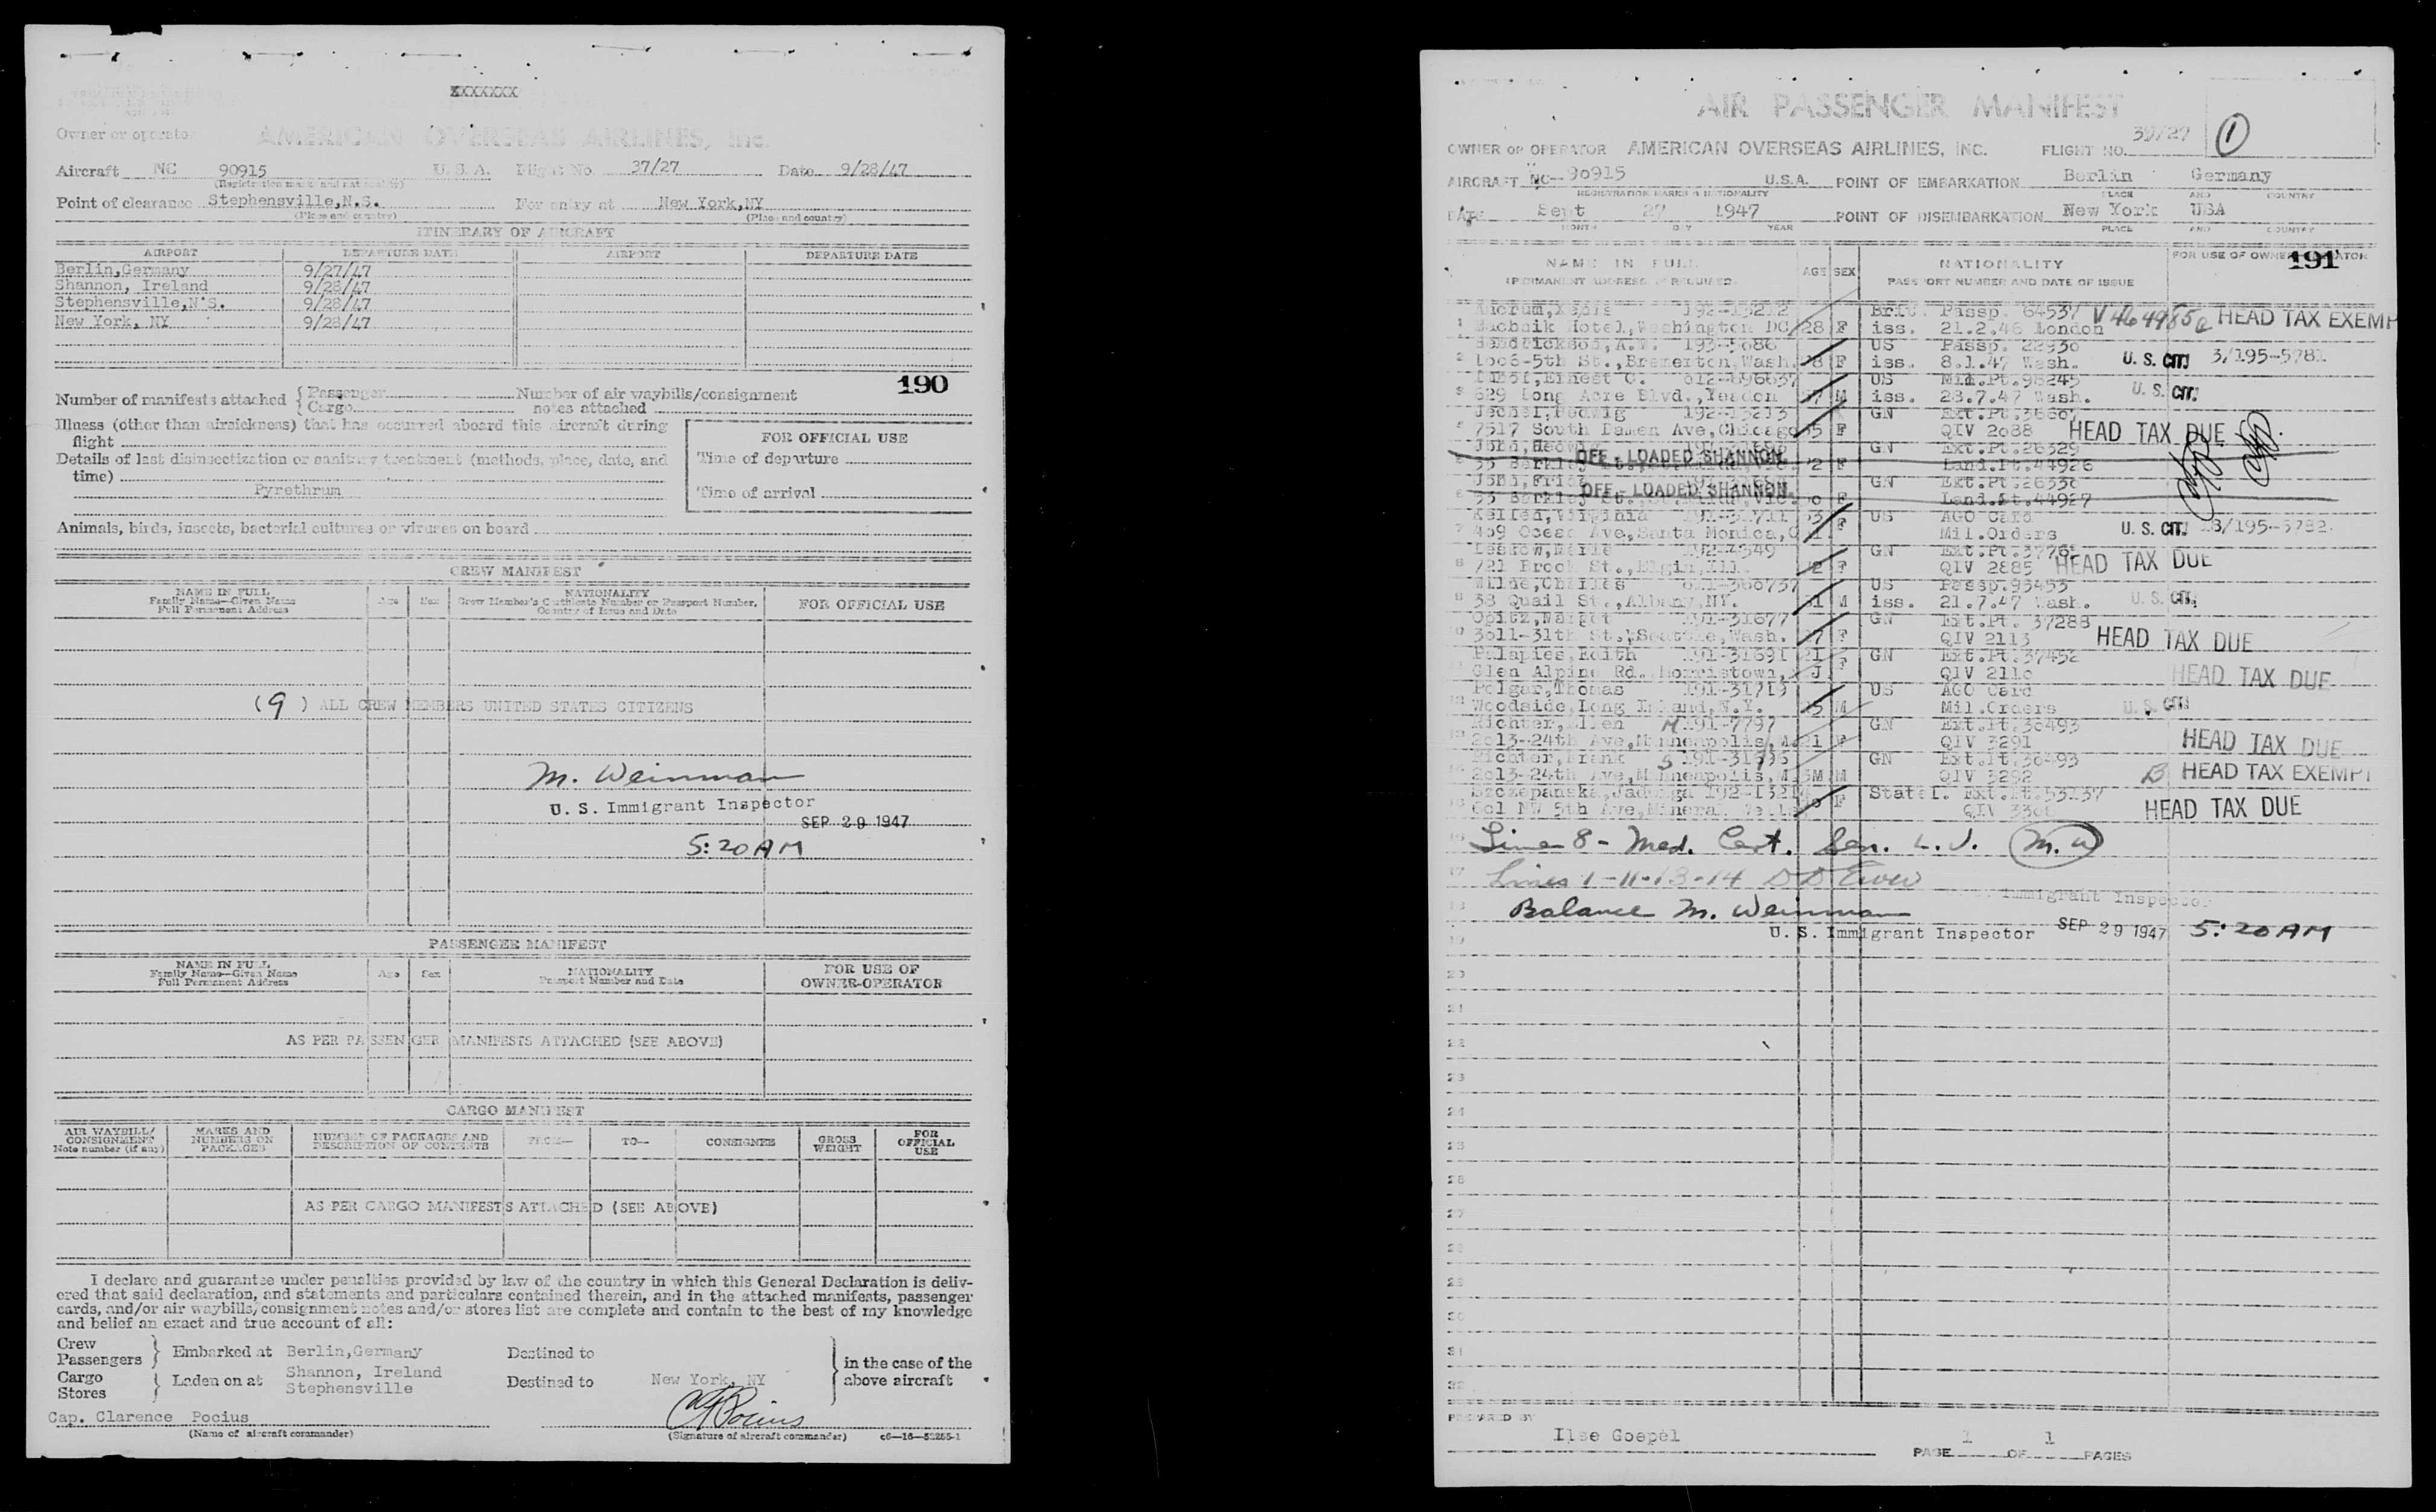 XXXXXXX
Owner or operator AMERICAN OVERSEAS AIRLINES, Inc.
Aircraft NC 90915 U. S. A. Flight No. 37/27 Date 9/28/47
(Registration marks and nationality)
Point of clearance Stephensville,N.S. For entry at New York,NY
(Place and country) (Place and country)
ITINERARY OF AIRCRAFT
AIRPORT DEPARTURE DATE AIRPORT DEPARTURE DATE
Berlin,Germany 9/27/47
Shannon, Ireland 9/28/47
Stephensville,N'S. 9/28/47
New York, NY 9/28/47
190
Number of manifests attached { Passenger Number of air waybills/consignment
Cargo notes attached
Illness (other than airsickness) that has occurred aboard this aircraft during
flight
Details of last disinsectization or sanitary treatment (methods, place, date, and
time)
Pyrethrum
FOR OFFICIAL USE
Time of departure
Time of arrival
Animals, birds, insects, bacterial cultures or viruses on board
CREW MANIFEST
NAME IN FULL
Family Name—Given Name
Full Permanent Address
Age Sex
NATIONALITY
Crew Member's Certificate Number or Passport Number,
Country of Issue and Date
FOR OFFICIAL USE
(9) ALL CREW MEMBERS UNITED STATES CITIZENS
M. Weinman
U. S. Immigrant Inspector
SEP 29 1947
5:20 AM
PASSENGER MANIFEST
NAME IN FULL
Family Name—Given Name
Full Permanent Address
Age Sex
NATIONALITY
Passport Number and Date
FOR USE OF
OWNER-OPERATOR
AS PER PASSENGER MANIFESTS ATTACHED (SEE ABOVE)
CARGO MANIFEST
AIR WAYBILL/
CONSIGNMENT
Note number (if any)
MARKS AND
NUMBERS ON
PACKAGES
NUMBER OF PACKAGES AND
DESCRIPTION OF CONTENTS
FROM— TO— CONSIGNEE
GROSS
WEIGHT
FOR
OFFICIAL
USE
AS PER CARGO MANIFESTS ATTACHED (SEE ABOVE)
I declare and guarantee under penalties provided by law of the country in which this General Declaration is deliv-
ered that said declaration, and statements and particulars contained therein, and in the attached manifests, passenger
cards, and/or air waybills/consignment notes and/or stores list are complete and contain to the best of my knowledge
and belief an exact and true account of all:
Crew
Passengers } Embarked at Berlin,Germany Destined to
Shannon, Ireland
Cargo
Stores } Laden on at Stephensville Destined to New York, NY
} in the case of the
above aircraft
Cap. Clarence Pocius
(Name of aircraft commander) (Signature of aircraft commander)
AIR PASSENGER MANIFEST
OWNER OR OPERATOR AMERICAN OVERSEAS AIRLINES, INC. FLIGHT NO. 37/27 1
AIRCRAFT NC- 90915 U.S.A. POINT OF EMBARKATION Berlin Germany
REGISTRATION MARKS & NATIONALITY PLACE AND COUNTRY
DATE Sept 27 1947 POINT OF DISEMBARKATION New York USA
MONTH DAY YEAR PLACE AND COUNTRY
NAME IN FULL
(PERMANENT ADDRESS IF REQUIRED)
AGE SEX
NATIONALITY
PASSPORT NUMBER AND DATE OF ISSUE
FOR USE OF OWNER
191
192-13212 Brit. Passp. 64537 HEAD TAX EXEMP
1 Hotel,Washington DC 28 F iss. 21.2.46 London
Hendrickson,A.W. 193-5086 US Passp. 22930
2 1006-5th St.,Bremerton,Wash. F iss. 8.1.47 Wash. U. S. CIT. 3/195-5781
Ernest C. US Mil.Pt.98245
629 Long Acre Blvd.,Yeadon M iss. 28.7.47 Wash. U. S. CIT.
Hedwig 192-13213 GN Ext.Pt.36607
7517 South Damen Ave,Chicago 55 F QIV 2088 HEAD TAX DUE
OFF-LOADED SHANNON. GN Ext.Pt.26329
F Land.Pt.44926
OFF-LOADED SHANNON. GN Ext.Pt.26330
F Land.Pt.44927
Virginia 191-31711 US AGO Card
7 409 Ocean Ave,Santa Monica,C F Mil.Orders U. S. CIT. 3/195-5782
GN
8 721 Brook St.,Elgin,Ill. F QIV 2885 HEAD TAX DUE
Milne,Charles US Passp.93453
9 38 Quail St.,Albany,NY. M iss. 21.7.47 Wash. U. S. CIT.
Opitz,Margot 191-31677 GN Ext.Pt. 37288
10 3011-31th St.,Seattle,Wash. F QIV 2113 HEAD TAX DUE
Edith 191-31691 21 GN Ext.Pt.37452
11 Glen Alpine Rd. Morristown, J. F QIV 2110 HEAD TAX DUE
Polgar,Thomas 191-31719 US AGO Card
12 Woodside,Long Island,N.Y. M Mil.Orders U. S. CIT.
Richter,Ellen 191-7797 GN Ext.Pt.30493
13 2013-24th Ave,Minneapolis,M. 21 F QIV 3291 HEAD TAX DUE
Richter,Frank GN Ext.Pt.30493
2013-24th Ave,Minneapolis,M. M QIV 3292 HEAD TAX EXEMPT
Szczepanska,Jadwiga Statel. Ext.Pt.53137
601 NW 5th Ave,Mineral Wells F QIV HEAD TAX DUE
Line 8 - Med. Cert. Sen. L.J. M.W
Lines 1-11-13-14
Immigrant Inspector
Balance M. Weinman
U. S. Immigrant Inspector SEP 29 1947 5:20 AM
19
20
21
22
23
24
25
26
27
28
29
30
31
32
PREPARED BY
Ilse Goepel
PAGE 1 OF 1 PAGES